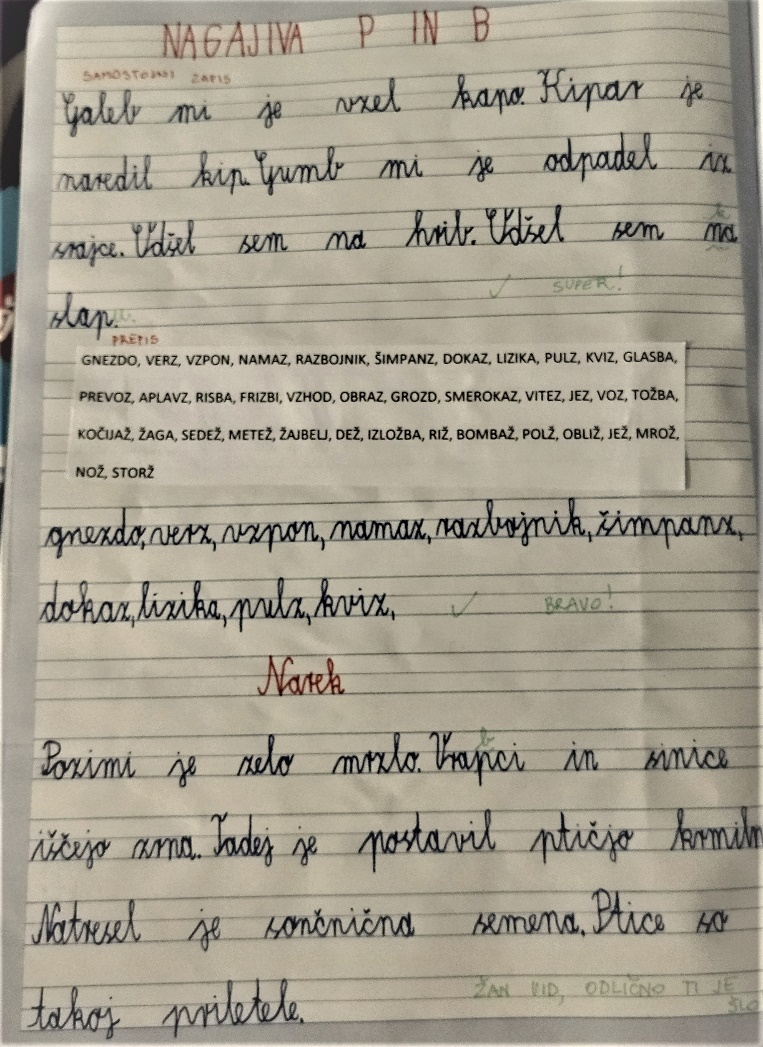 NAGAJIVA P IN B
SAMOSTOJNI ZAPIS
Galeb mi je vzel kapo. Kipar je
naredil kip. Gumb mi je odpadel iz
srajce. Odšel sem na hrib. Odšel sem na
k
slap. u.
✓ SUPER!
PREPIS
GNEZDO, VERZ, VZPON, NAMAZ, RAZBOJNIK, ŠIMPANZ, DOKAZ, LIZIKA, PULZ, KVIZ, GLASBA,
PREVOZ, APLAVZ, RISBA, FRIZBI, VZHOD, OBRAZ, GROZD, SMEROKAZ, VITEZ, JEZ, VOZ, TOŽBA,
KOČIJAŽ, ŽAGA, SEDEŽ, METEŽ, ŽAJBELJ, DEŽ, IZLOŽBA, RIŽ, BOMBAŽ, POLŽ, OBLIŽ, JEŽ, MROŽ,
NOŽ, STORŽ
gnezdo, verz, vzpon, namaz, razbojnik, šimpanz,
dokaz, lizika, pulz, kviz, ✓ BRAVO!
Narek
b
Pozimi je zelo mrzlo. Vrapci in sinice
iščejo zrna. Tadej je postavil ptičjo krmiln
Natresel je sončnična semena. Ptice so
takoj priletele. ŽAN VID, ODLIČNO TI JE
ŠLO